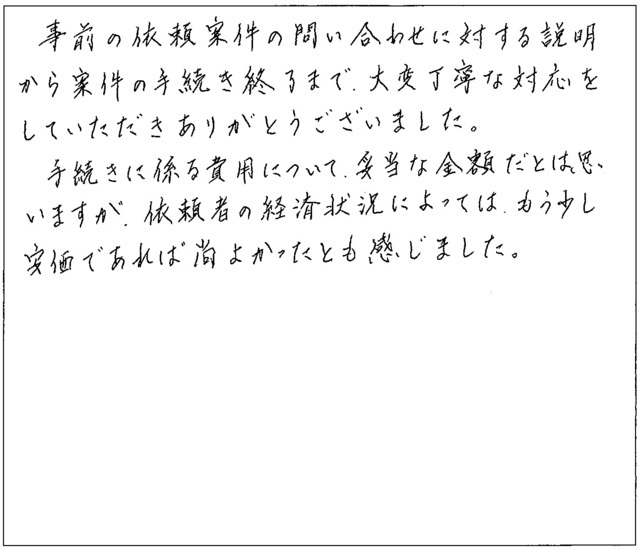 事前の依頼案件の問い合わせに対する説明
から案件の手続き終るまで、大変丁寧な対応を
していただきありがとうございました。
手続きに係る費用について、妥当な金額だとは思
いますが、依頼者の経済状況によっては、もう少し
安価であれば尚よかったとも感じました。